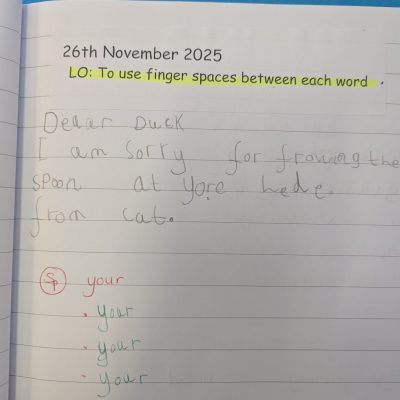 26th November 2025
LO: To use finger spaces between each word
Dear Duck
I am Sorry for frowing the
spoon at yore hede.
from cat.
Sp your
your
your
your